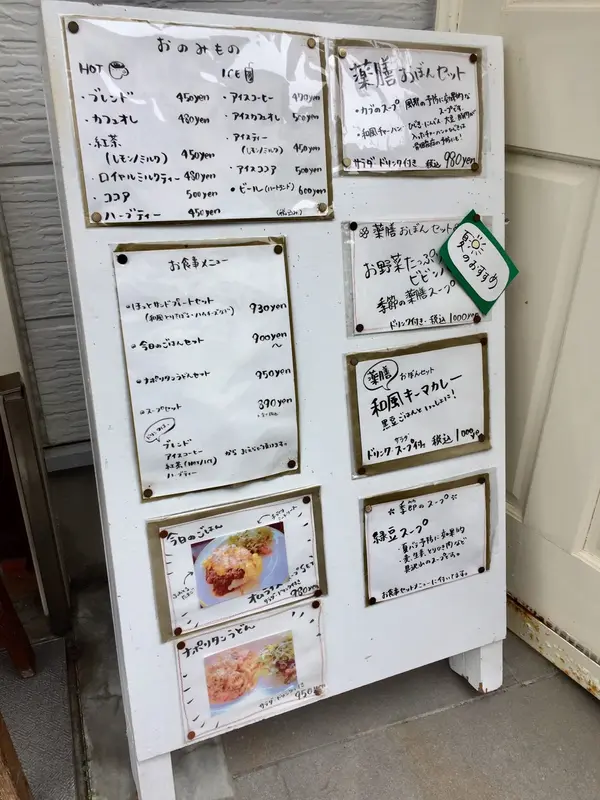 おのみもの
HOT
ICE
・ブレンド 450yen
・カフェオレ 480yen
・紅茶
(レモン/ミルク) 450yen
・ロイヤルミルクティー 480yen
・ココア 500yen
・ハーブティー 450yen
・アイスコーヒー 470yen
・アイスカフェオレ 500yen
・アイスティー
(レモン/ミルク) 450yen
・アイスココア 500yen
・ビール(ハートランド) 600yen
お食事メニュー
ほっとサンドプレートセット 930yen
今日のごはんセット 900yen
〜
ナポリタンうどんセット 950yen
スープセット 890yen
ブレンド
アイスコーヒー
紅茶
ハーブティー
から お選び
今日のごはん
オムライス
スープSet
980yen
ナポリタンうどん
950yen
薬膳おぼんセット
・カブのスープ
・和風チャーハン
サラダ ドリンク付き 税込 980yen
薬膳おぼんセット
お野菜たっぷり
ビビン
季節の薬膳スープ
ドリンク付き 税込 1000yen
夏
のおすすめ
薬膳 おぼんセット
和風キーマカレー
黒豆ごはんと
サラダ
ドリンク・スープ付き 税込 1000yen
☆季節のスープ☆
緑豆スープ
・夏バテ予防に効果的
・麦、生姜、とりひき肉など
具沢山のスープです。
お食事セットメニューに付いてます。